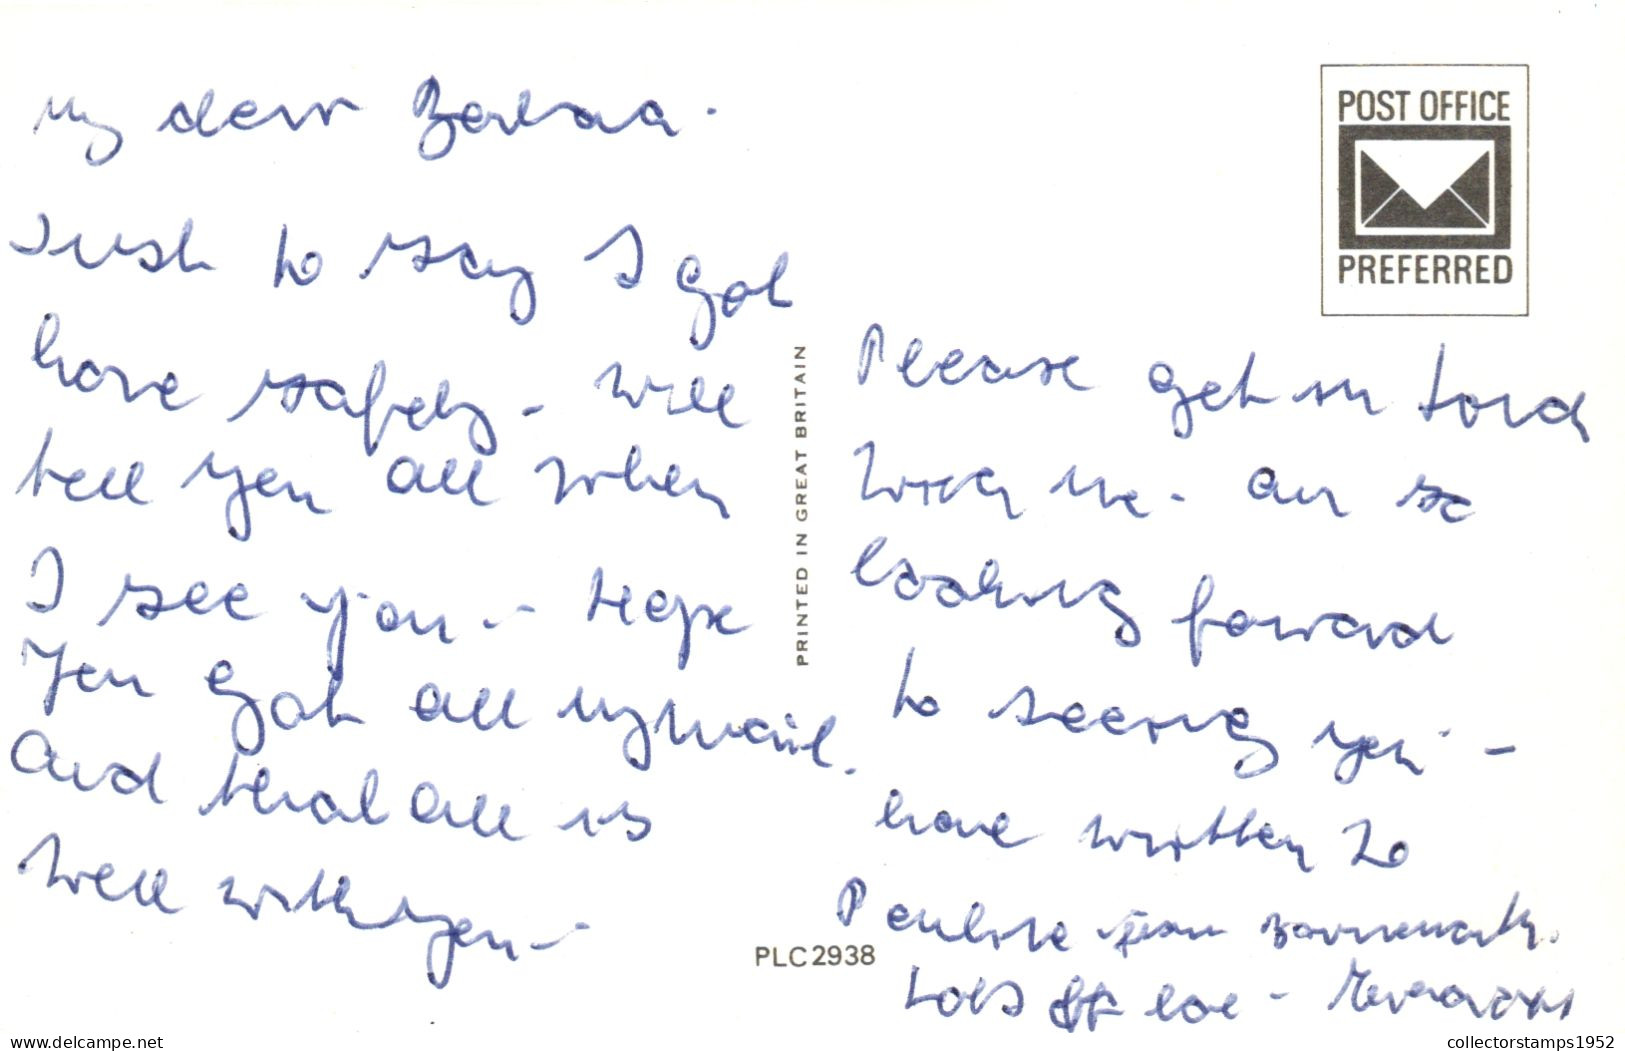 My dear Barbara.
Just to say I got
home safely - will
tell you all when
I see you - Hope
You got all my mail.
And that all is
Well with you -
POST OFFICE
PREFERRED
PRINTED IN GREAT BRITAIN
PLC2938
Please get in touch
with me - am so
looking forward
to seeing you -
have written to
Pauline from
Lots of love -
delcampe.net
collectorstamps1952